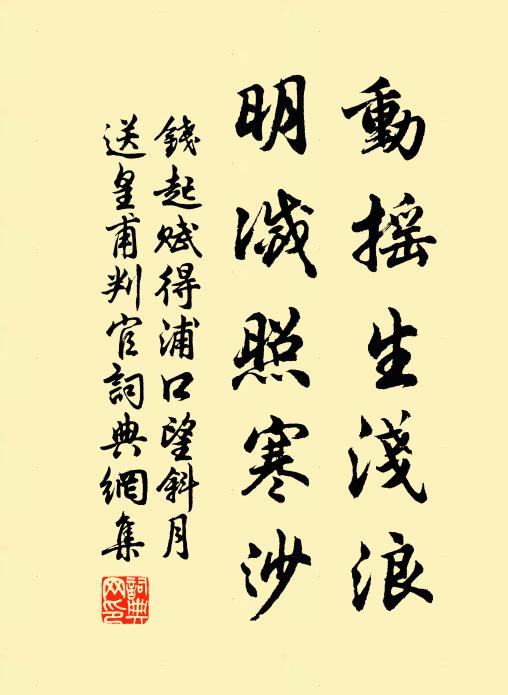 動搖生淺浪
明滅照寒沙
錢起賦得浦口望斜月
送皇甫判官詞典網集
詞典網印